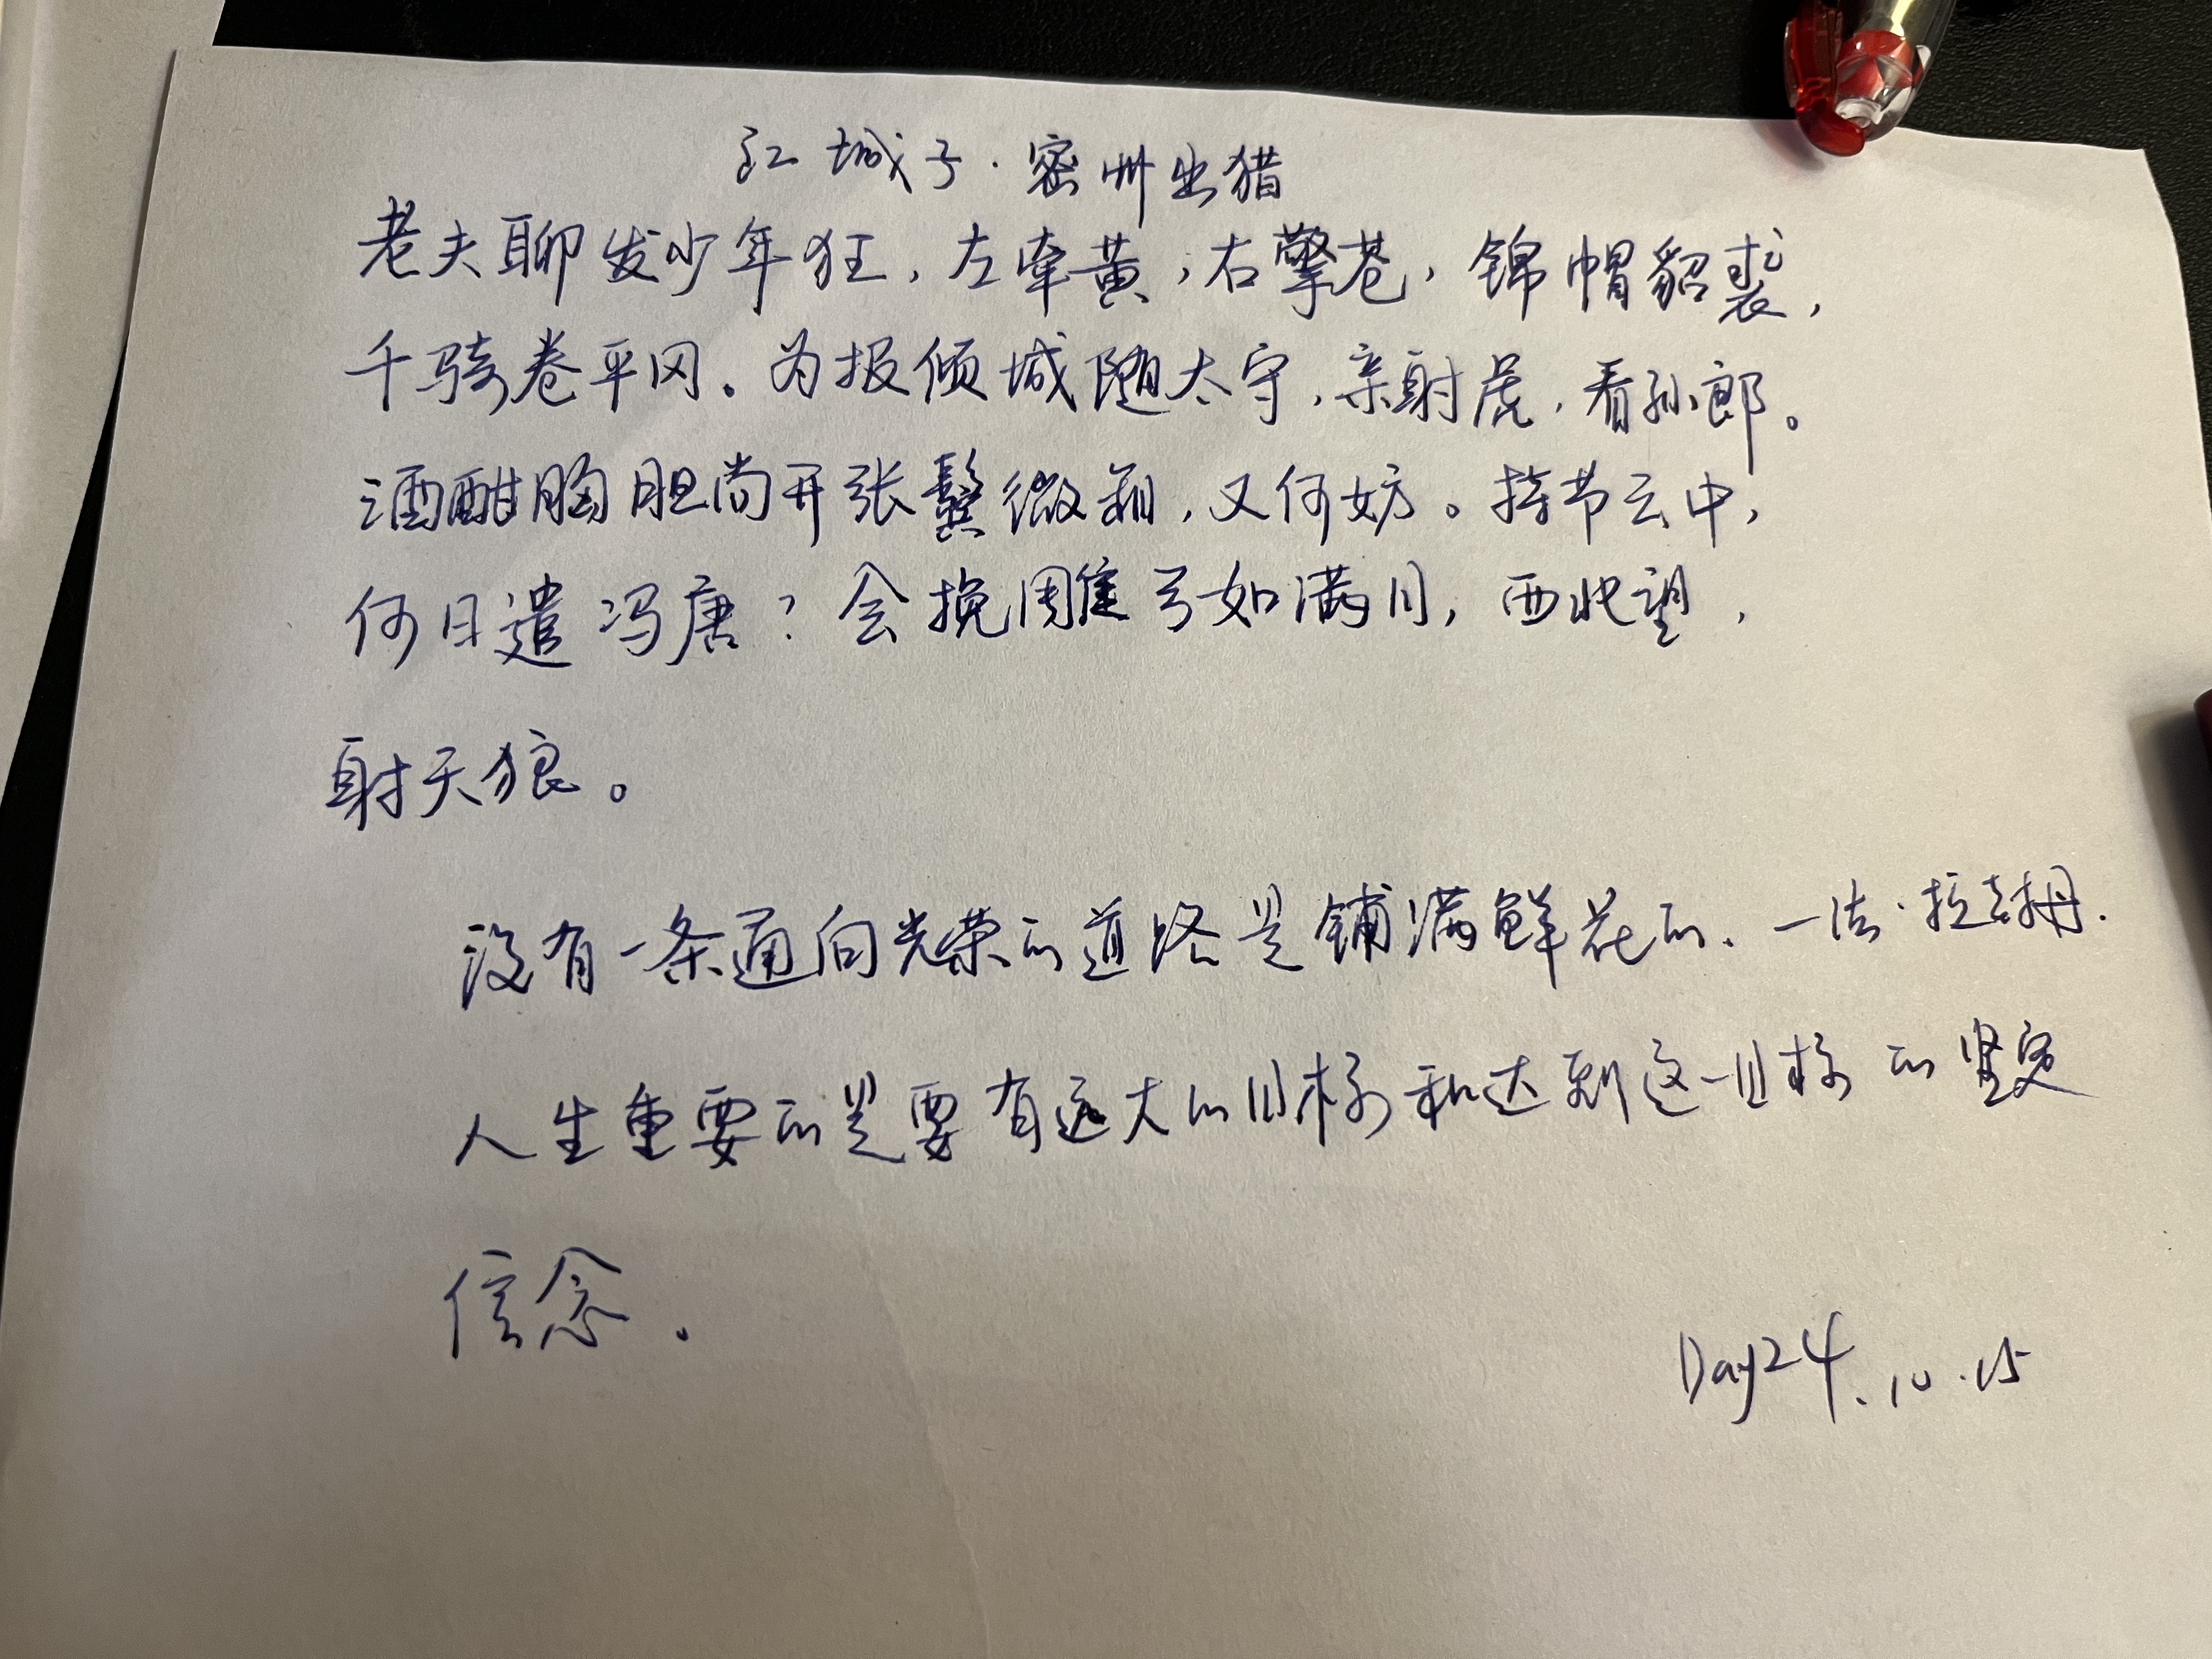 江城子·密州出猎
老夫聊发少年狂，左牵黄，右擎苍，锦帽貂裘，
千骑卷平冈。为报倾城随太守，亲射虎，看孙郎。
酒酣胸胆尚开张鬓微霜，又何妨。持节云中，
何日遣冯唐？会挽雕弓如满月，西北望，
射天狼。
没有一条通向光荣的道路是铺满鲜花的.—法·拉封丹.
人生重要的是要有远大的目标和达到这一目标的坚定
信念.
Day24.10.15